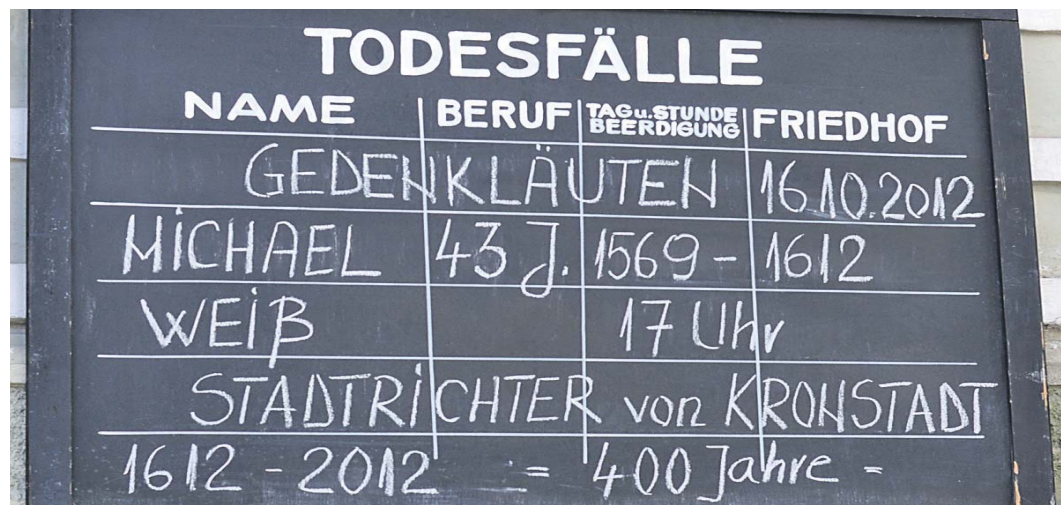 TODESFÄLLE
NAME BERUF TAG u. STUNDE BEERDIGUNG FRIEDHOF
GEDENKLÄUTEN 16.10.2012
MICHAEL 43 J. 1569 - 1612
WEIß 17 Uhr
STADTRICHTER von KRONSTADT
1612 - 2012 = 400 Jahre =